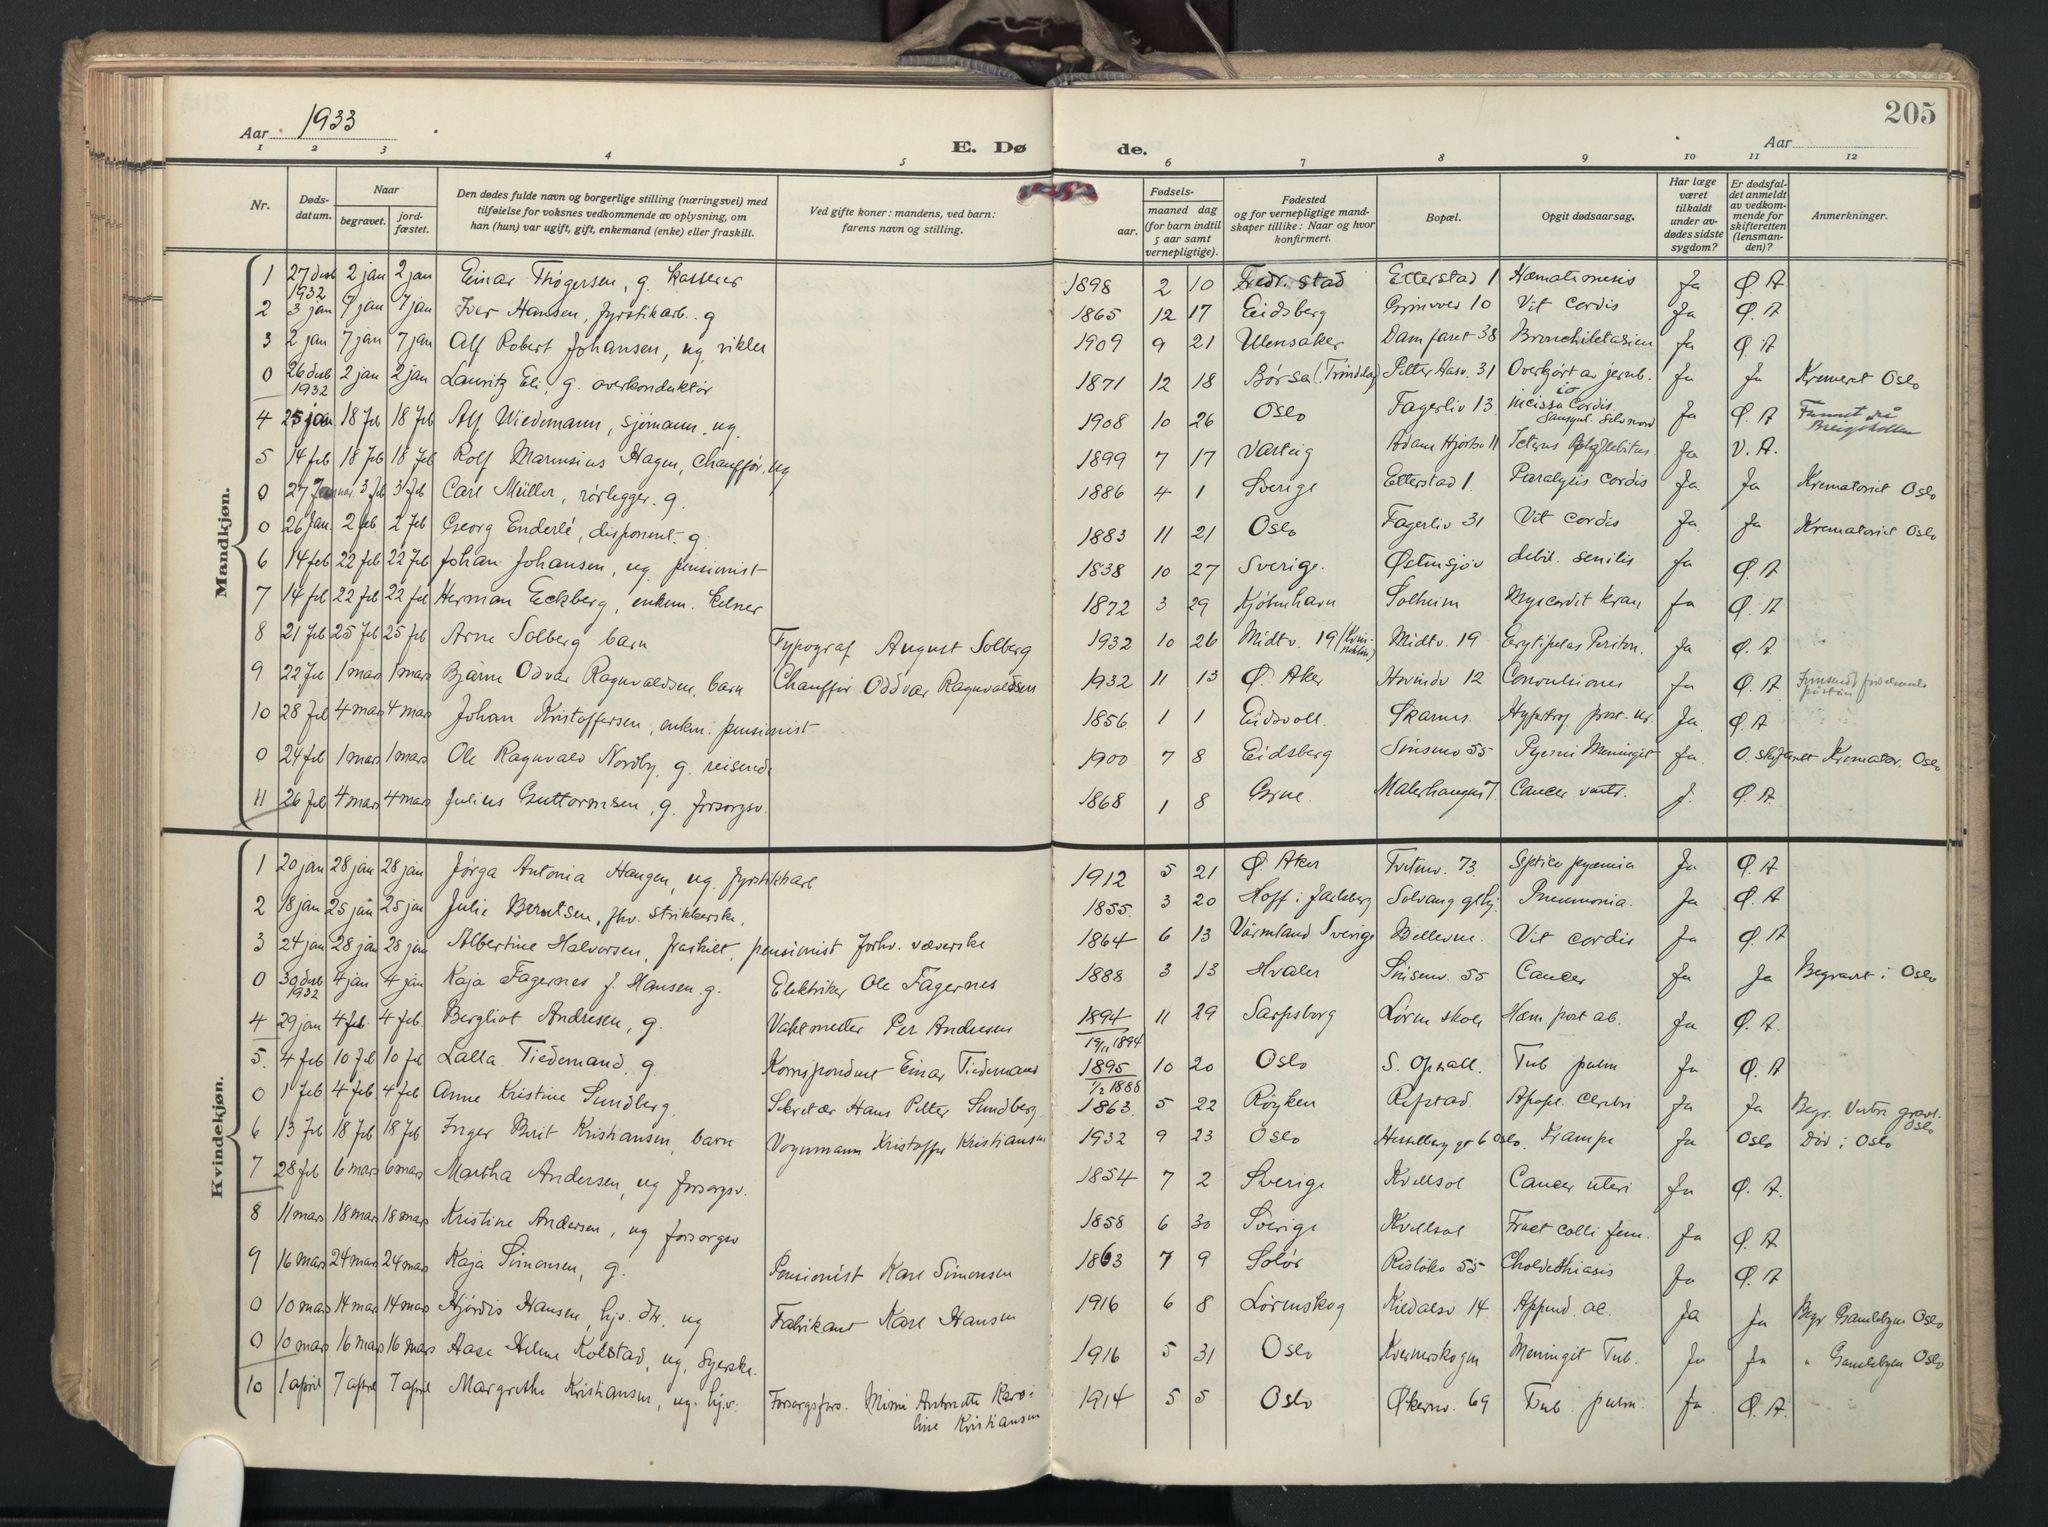 205
Aar 1933
E. Døde.
Aar
1 2 3 4 5 6 7 8 9 10 11 12
Nr. | Dødsdatum. | Naar begravet. | jordfæstet. | Den dødes fulde navn og borgerlige stilling (næringsvei) med tilføielse for voksnes vedkommende av oplysning, om han (hun) var ugift, gift, enkemand (enke) eller fraskilt. | Ved gifte koner: mandens, ved barn: farens navn og stilling. | Fødsels- aar. | maaned dag (for barn indtil 5 aar samt vernepligtige). | Fødested og for vernepligtige mandskaper tillike: Naar og hvor konfirmert. | Bopæl. | Opgit dødsaarsag. | Har læge været tilkaldt under avdødes sidste sygdom? | Er dødsfaldet anmeldt av vedkommende for skifteretten (lensmanden)? | Anmerkninger.
Mandkjøn.
1 27 desb 1932 2 jan 2 jan Einar Thøgersen, g. kasserer 1898 2 10 Fredr.stad Etterstad 1 Hæmatemesis Ja Ø. A
2 3 jan 7 jan 7 jan Iver Hansen, fyrstikarb. g 1865 12 17 Eidsberg 10 Vit cordis Ja Ø. A
3 2 jan 7 jan 7 jan Alf Robert Johansen, ug. vikler 1909 9 21 Ullensaker Damfaret 38 Bronchiektasien Ja Ø. A
0 26 desb 1932 2 jan 2 jan Lauritz Eli, g. overkonduktør 1871 12 18 Børsa (Trøndelag) Petter Aasv. 31 Overkjørt av jernb. Ja Ja Kremeret Oslo
4 25 jan 18 feb 18 feb Alf Wiedemann, sjømann. ug. 1908 10 26 Oslo Fagerliv 13 Cordis Ja Ø. A Funnet på
5 14 feb 18 feb 18 feb Rolf Marensius Hagen, chauffør. ug 1899 7 17 Varteig Adam Hjortsv 11 Icterus Ja V. A.
0 27 Januar. 3 feb 3 feb Carl Müller, rørlegger. g. 1886 4 1 Sverige Etterstad 1. Paralysis cordis Ja Ja Krematoriet Oslo
0 26 Jan. 2 feb. 2 feb Georg Enderlé, disponent. g. 1883 11 21 Oslo Fagerliv 31 Vit cordis Ja Ja Krematoriet Oslo
6 14 feb 22 feb 22 feb Johan Johansen, ug. pensionist 1838 10 27 Sverige. Østensjøv debil. senilis Ja Ø. A
7 14 feb 22 feb 22 feb Herman Eckberg, enkem. kelner 1872 3 29 Kjøbenhavn Solheim Myocordit kron Ja Ø. A
8 21 feb 25 feb 25 feb Arne Solberg barn Typograf August Solberg 1932 10 26 Midtv. 19 Midtv. 19 Erysipelas Periton. Ja Ø. A
9 22 feb 1 mars 1 mars Bjarne Odvar Ragnvaldsen, barn Chauffør Oddvar Ragnvaldsen 1932 11 13 Ø. Aker Hovindv 12 Convulsiones Ja Ø. A
10 28 feb 4 mars 4 mars Johan Kristoffersen, enkm. pensionist 1856 1 1 Eidsvoll. Skarnes. Hypertrof prost. Ja. Ø. A
0 24 feb 1 mars 1 mars Ole Ragnvald Nordby, g. reisende 1900 7 8 Eidsberg Sinsenv 55 Pyemi Meningit Ja. O. skifteret Kremator. Oslo
11 26 feb 4 mars 4 mars Julius Guttormsen, g. forsorgsv. 1868 1 8 Grue. Malerhaugen 7. Cancer ventr. J. Ø. A
Kvindekjøn.
1 20 jan 28 jan 28 jan Jørga Antonia Haugen, ug. fyrstikkarb 1912 5 21 Ø. Aker Tvetenv. 73. Septico pyæmia Ja Ø. A
2 18 jan 25 jan 25 jan Julie Berntsen, fhv. strikkerske, 1855. 3 20 Hoff i Jarlsberg Solvang glhj. Pneumonia. Ja Ø. A
3 24 jan 28 jan 28 jan Albertine Halvorsen, fraskilt, pensionist Forhv. væverske 1864 6 13 Värmland Sverige Bellevue. Vit cordis Ja Ø. A
0 30 desb 1932 4 jan 4 jan Kaja Fagernes f. Hansen. g. Elektriker Ole Fagernes 1888 3 13 Hvaler Sinsenv. 55 Cancer Ja Ja Begravet i Oslo
4 29 jan 4 feb. 4 feb. Bergliot Andresen, g. Vaktmester Per Andresen 1894 11 29 Sarpsborg Løren skole Hæm post ab. Ja Ø. A.
19/11 1894
5. 4 feb 10 feb 10 feb Lalla Tiedemand. g. Korrespondent Einar Tiedemand 1895 10 20 Oslo S. Opsall. Tub pulm Ja Ø. A
1/2 1888
0 1 feb 4 feb 4 feb Anne Kristine Sundberg. Sekretær Hans Petter Sundberg. 1863. 5 22 Røyken Refstad. Apopl. cerebri Ja Ja Begr. Vestre gravl. Oslo
6 13 feb 18 feb 18 feb Inger Berit Kristiansen, barn Vognmann Kristoffer Kristiansen 1932 9 23 Oslo Hesselberg gt 6 Oslo. Krampe Ja Oslo Død i Oslo
7 28 feb 6 mars 6 mars Martha Andersen, ug forsorgsv. 1854 7 2 Sverige Kveldsol Cancer uteri Ja Ø. A.
8 11 mars 18 mars 18 mars Kristine Andersen, ug forsorgsv 1858 6 30 Sverige Kveldsol Fract colli fem. Ja Ø. A
9 16 mars 24 mars 24 mars Kaja Simonsen, g. Pensionist Karl Simonsen 1863 7 9 Solør Risløkv 55 Cholelithiasis Ja Ø. A
0 10 mars 14 mars 14 mars Hjørdis Hansen, hjv. dtr. ug Fabrikant Karl Hansen 1916 6 8 Lørenskog Kildalsv 14. Append ac. Ja Ja Begr Gamlebyen Oslo
0 10 mars 16 mars 16 mars Aase Helene Kolstad, ug, syerske. 1916 5 31 Oslo Kværnerskogen Meningit Tub. Ja Ja " Gamlebyen Oslo
10 1 april 7 april 7 april Margrethe Kristiansen, ug. hjv. Forsorgsforv. Mimi Antonette Karoline Kristiansen 1914 5 5 Oslo Økernv. 69 Tub. pulm. Ja Ø. A.